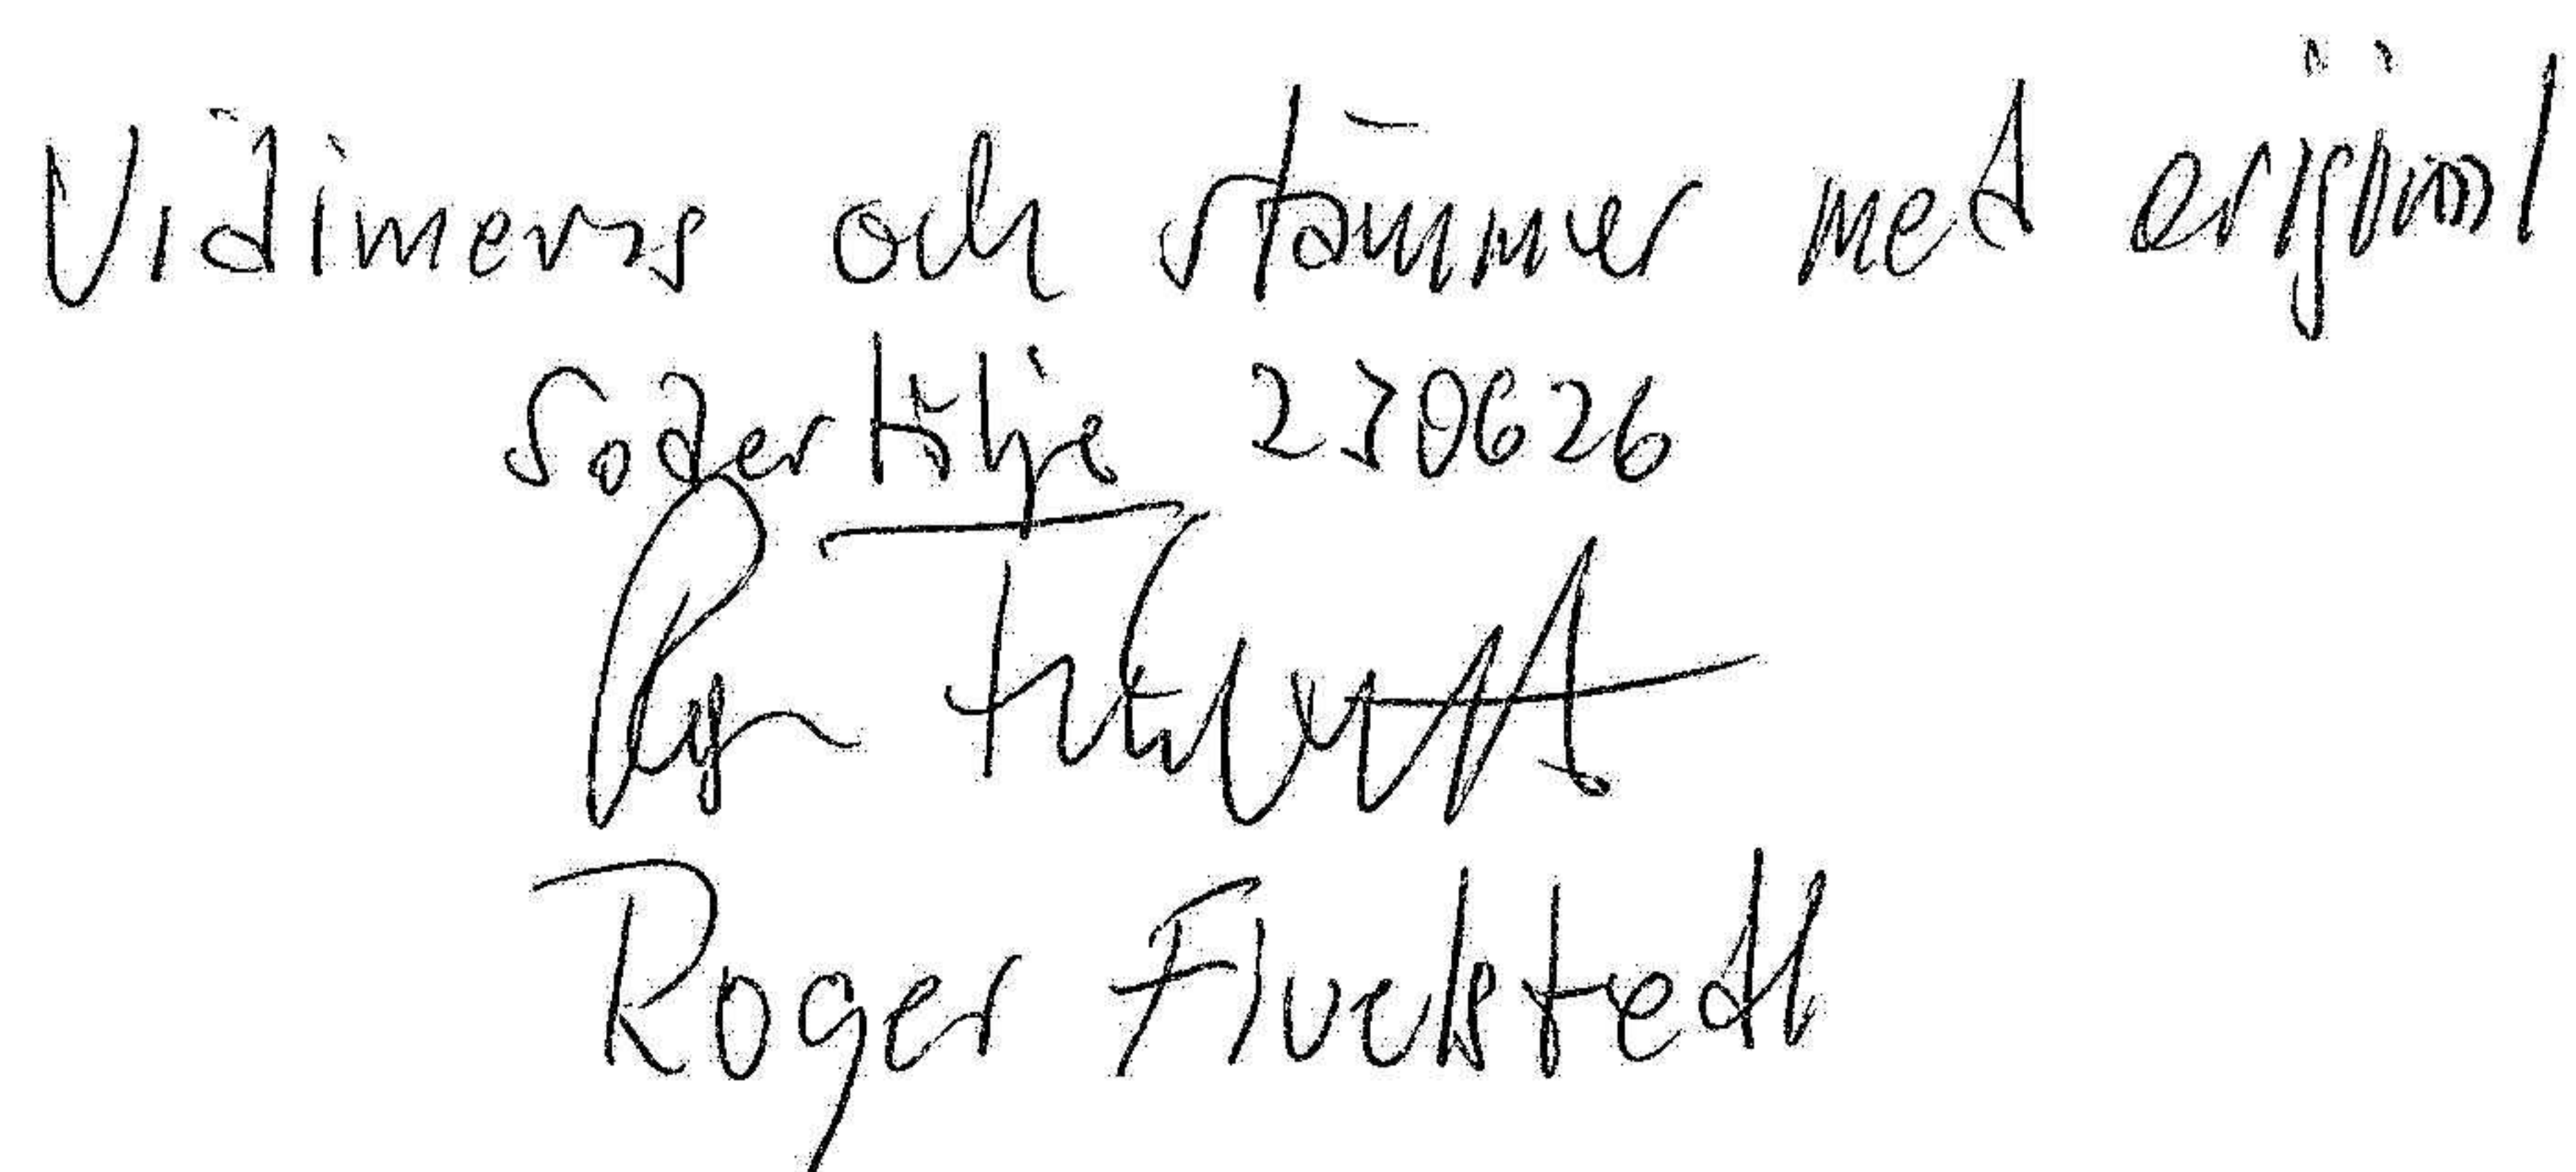 Vidimeras och stämmer med original
Södertälje 230626
Roger